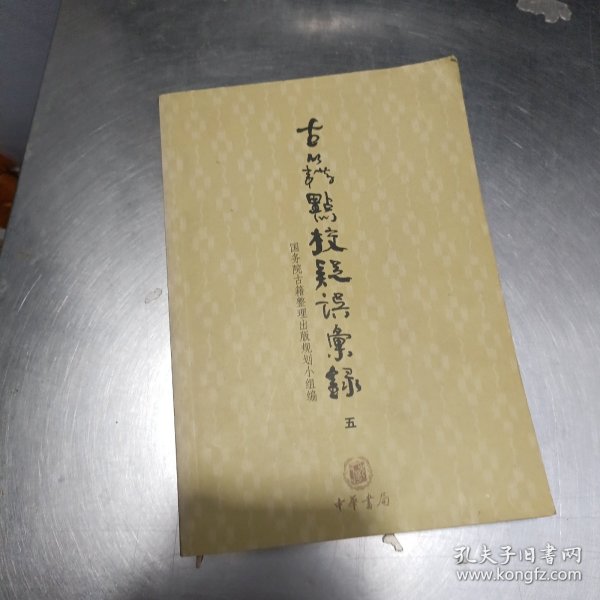 古籍點校疑误彙録
国务院古籍整理出版规划小组编
五
中华书局
孔夫子旧书网
www.kongfz.com